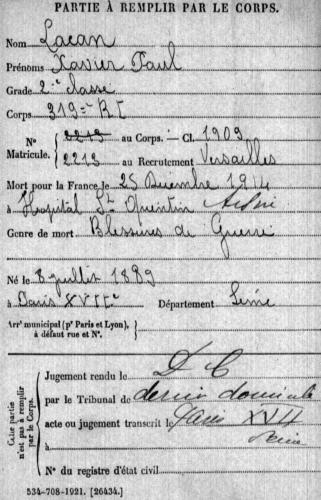 PARTIE À REMPLIR PAR LE CORPS.
Nom Lacan
Prénoms Xavier Paul
Grade 2e classe
Corps 319e RI
N° Matricule. 2213 au Corps. — Cl. 1909
2213 au Recrutement Versailles
Mort pour la France le 25 Décembre 1914
à Hôpital St Quentin Aisne
Genre de mort Blessures de Guerre
Né le 8 juillet 1889
à Paris XVIIe Département Seine
Arrt municipal (pr Paris et Lyon), à défaut rue et N°.
Cette partie n'est pas à remplir par le Corps.
Jugement rendu le D C
par le Tribunal de dernier domicile
acte ou jugement transcrit le Paris XVII
Seine
N° du registre d'état civil
534-708-1921. [26434.]